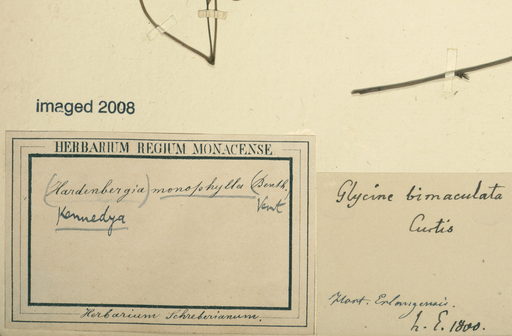 imaged 2008
HERBARIUM REGIUM MONACENSE
(Hardenbergia) monophylla (Benth,
Kennedya Vent
Herbarium Schreberianum.
Glycine bimaculata
Curtis
Hort. Erlangensis.
h. E. 1800.